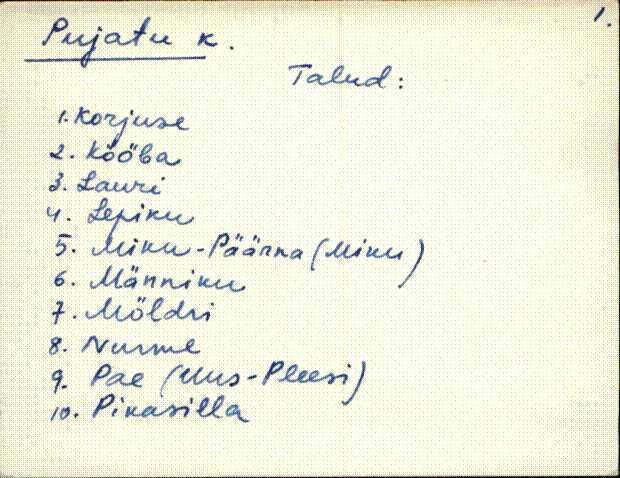 1.
Pujatu k.
Talud:
1. Korjuse
2. Kööba
3. Lauri
4. Lepiku
5. Miku-Päärna (Miku)
6. Männiku
7. Möldri
8. Nurme
9. Pae (Uus-Pleesi)
10. Pikasilla